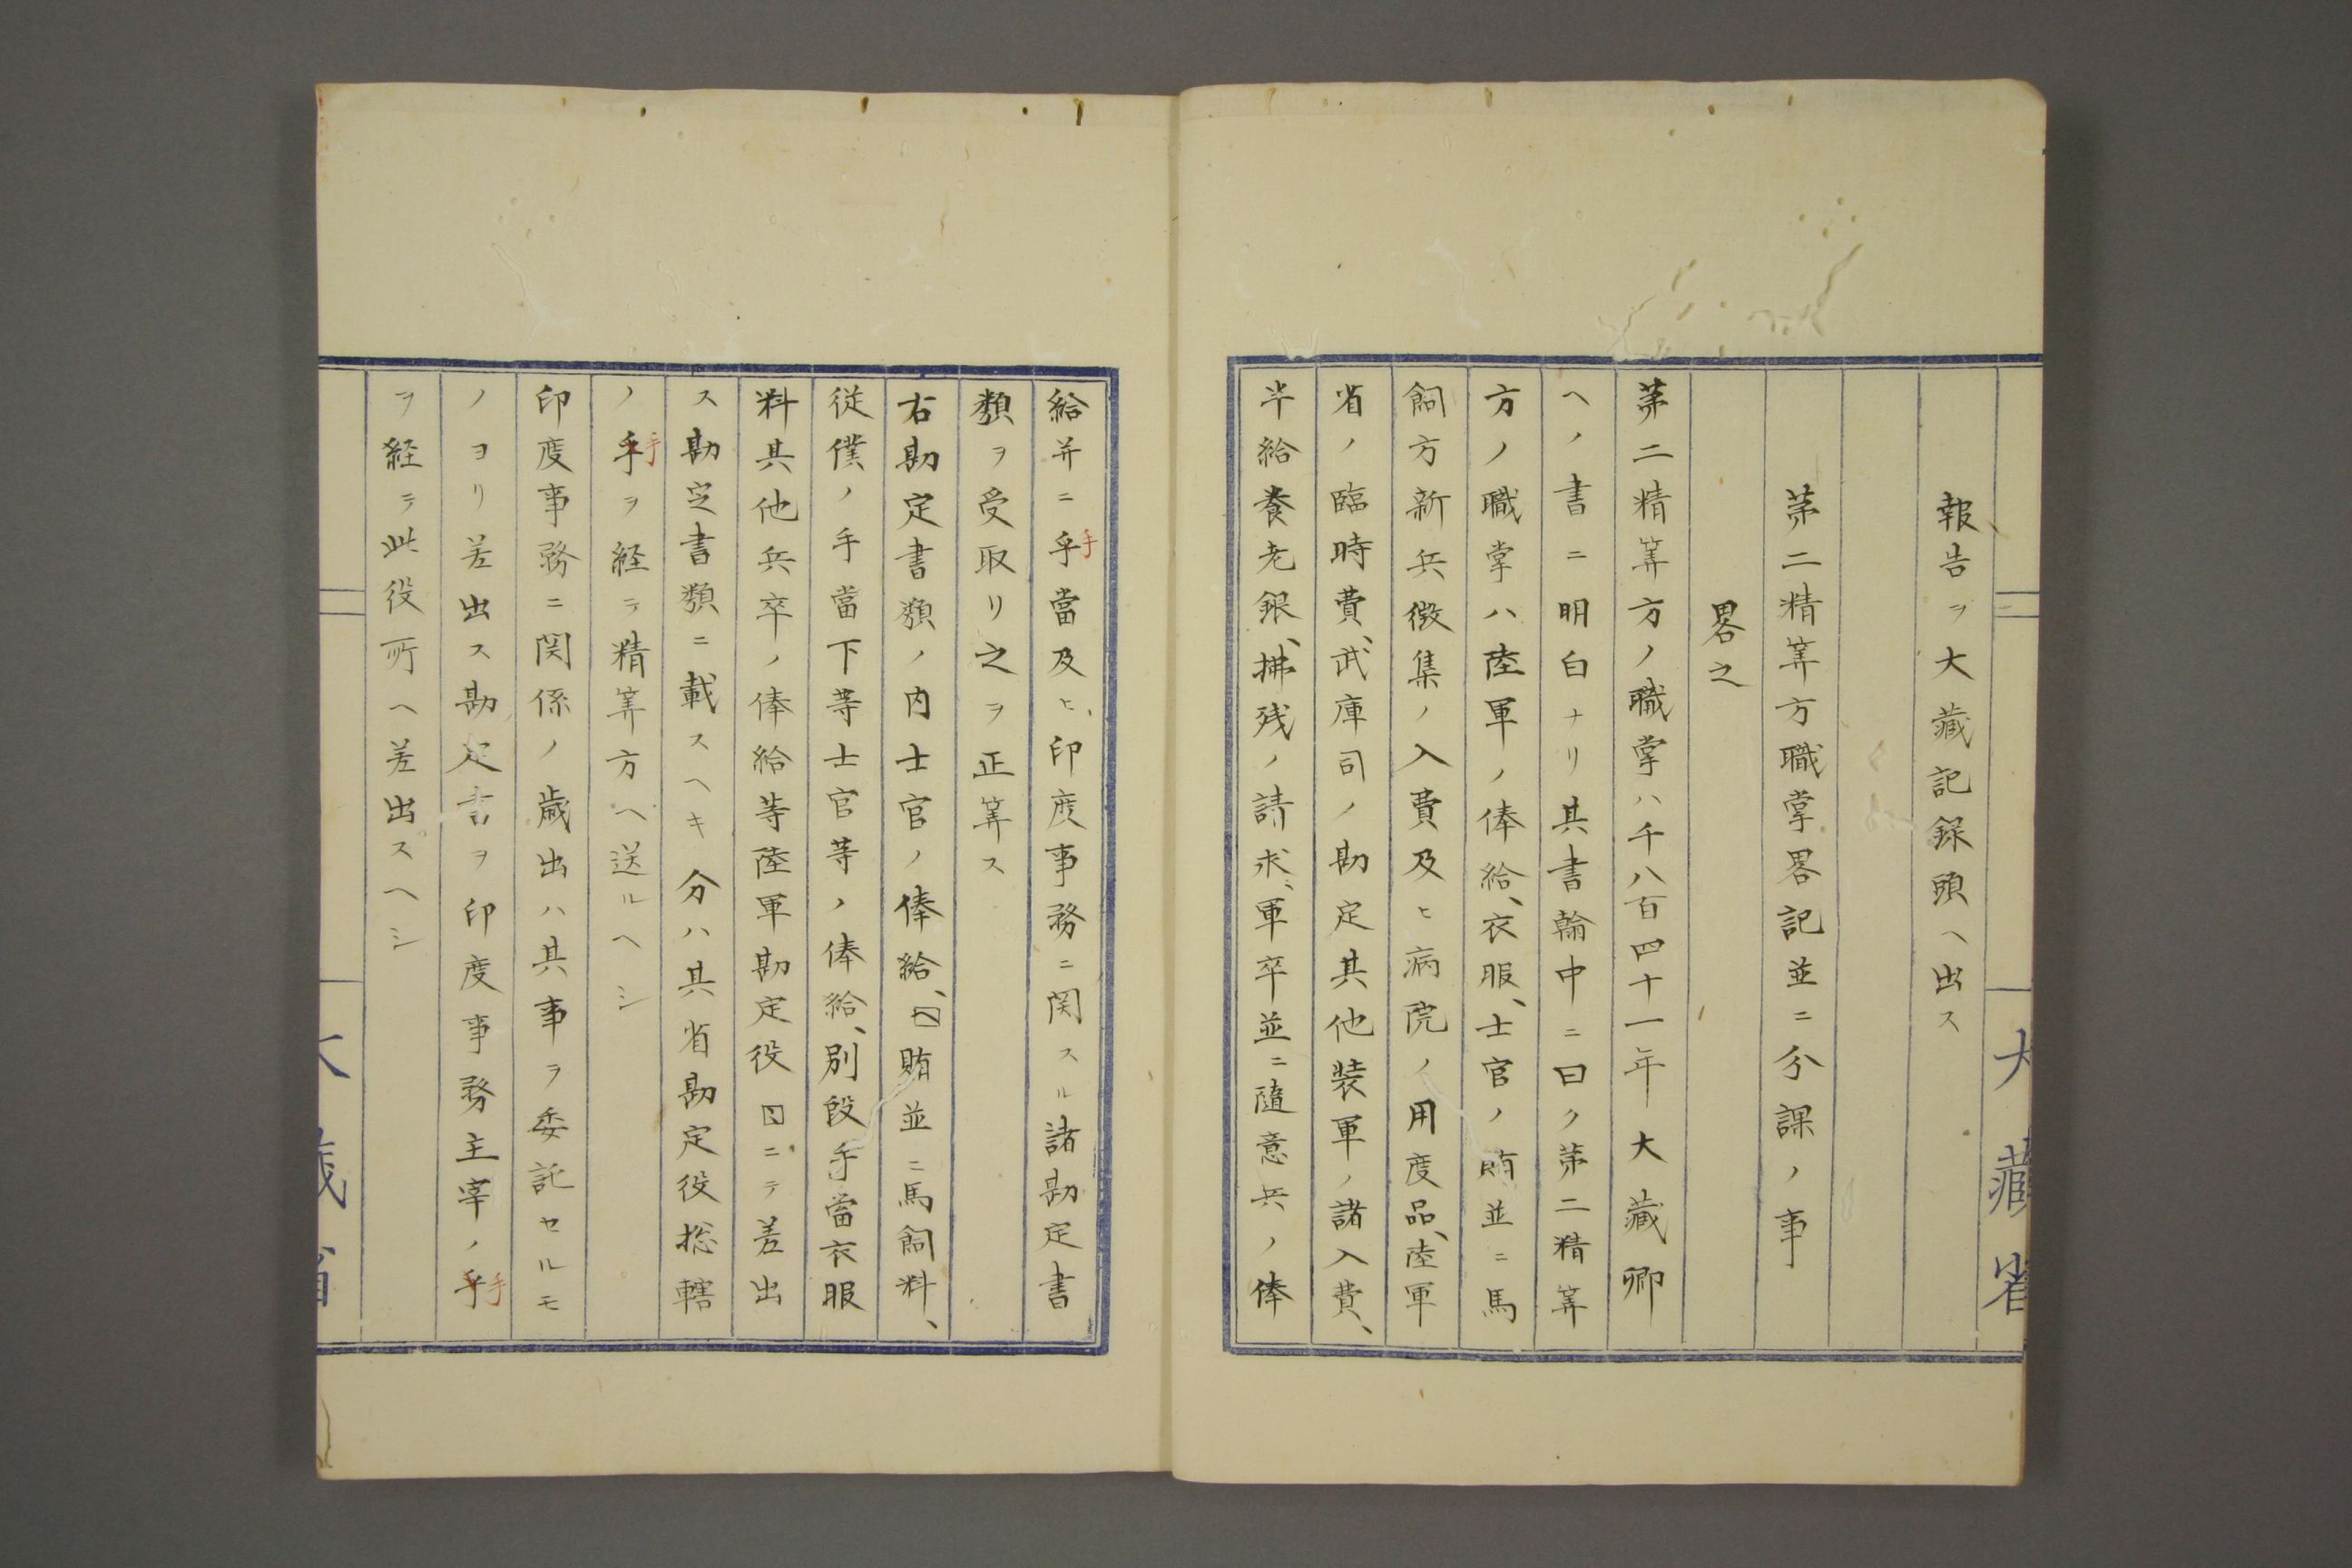 報告ヲ大藏記録頭ヘ出ス
第二精筭方職掌畧記並ニ分課ノ事
畧之
第二精筭方ノ職掌ハ千八百四十一年大藏卿
ヘノ書ニ明白ナリ其書翰中ニ曰ク第二精筭
方ノ職掌ハ陸軍ノ俸給、衣服、士官ノ賄並ニ馬
飼方新兵徴集ノ入費及ヒ病院ノ用度品、陸軍
省ノ臨時費、武庫司ノ勘定其他装軍ノ諸入費、
半給養老銀、拂残ノ請求、軍卒並ニ隨意兵ノ俸
大藏省
給并ニ手當及ヒ、印度事務ニ関スル諸勘定書
類ヲ受取リ之ヲ正筭ス
右勘定書類ノ内士官ノ俸給、賄並ニ馬飼料、
従僕ノ手當下等士官等ノ俸給、別段手當衣服
料其他兵卒ノ俸給等陸軍勘定役ニテ差出
ス勘定書類ニ載スヘキ分ハ其省勘定役総轄
ノ手ヲ経テ精筭方ヘ送ルヘシ
印度事務ニ関係ノ歳出ハ其事ヲ委託セルモ
ノヨリ差出ス勘定書ヲ印度事務主宰ノ手
ヲ経テ此役所ヘ差出スヘシ